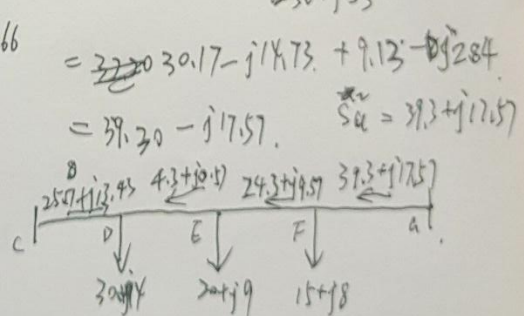 66
= 30.17-j14.73 + 9.13-j2.84
= 39.30 - j17.57. Sa = 39.3+j17.57
4.3+j0.57 24.3+j9.57 39.3+j17.57
C D E F G
20+j9 15+j8